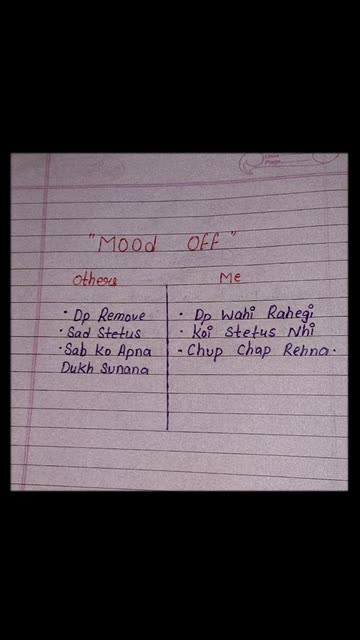 "Mood Off"
Others Me
• Dp Remove • Dp Wahi Rahegi
• Sad Stetus • Koi Stetus Nhi
• Sab Ko Apna - Chup Chap Rehna.
Dukh Sunana